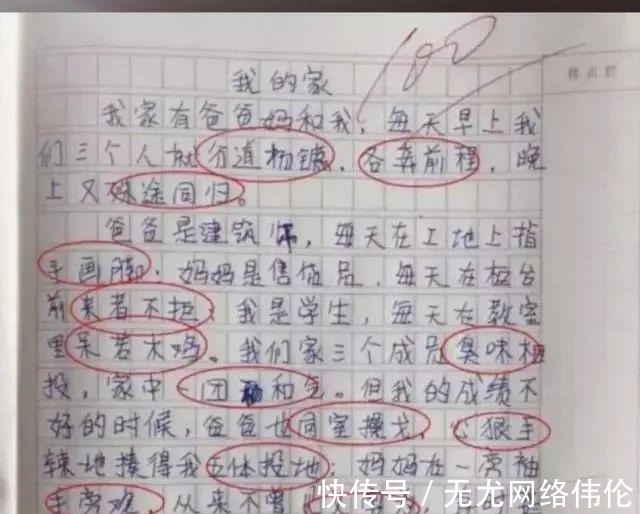 100
我的家
我家有爸爸妈和我,每天早上我
们三个人就分道扬镳,各奔前程,晚
上又殊途同归。
爸爸是建筑师,每天在工地上指
手画脚;妈妈是售货员,每天在柜台
前来者不拒;我是学生,每天在教室
里呆若木鸡。我们家三个成员臭味相
投,家中一团和气。但我的成绩不
好的时候,爸爸也同室操戈,心狠手
辣地揍得我五体投地;妈妈在一旁袖
手旁观,从来不曾
快传号/无尤网络伟伦